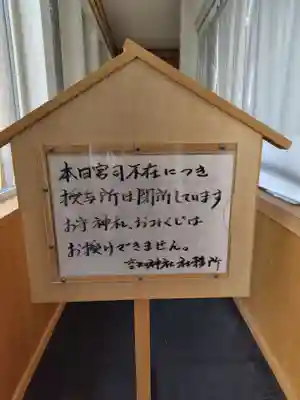 本日宮司不在につき
授与所は閉所しています
お守 神札、おみくじは
お授けできません。
神社社務所